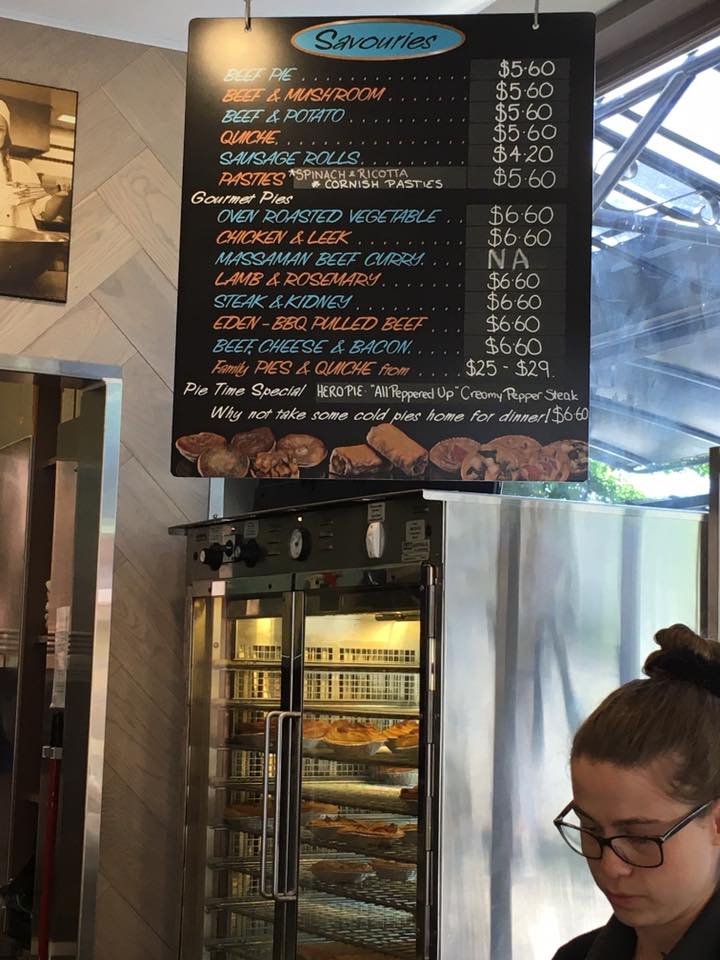 Savouries
BEEF PIE . . . . . . . . . . . . . . . . . $5.60
BEEF & MUSHROOM . . . . . . . . $5.60
BEEF & POTATO . . . . . . . . . . . . $5.60
QUICHE. . . . . . . . . . . . . . . . . . . $5.60
SAUSAGE ROLLS . . . . . . . . . . . $4.20
PASTIES *SPINACH & RICOTTA
* CORNISH PASTIES $5.60
Gourmet Pies
OVEN ROASTED VEGETABLE . . $6.60
CHICKEN & LEEK . . . . . . . . . . . $6.60
MASSAMAN BEEF CURRY. . . . NA
LAMB & ROSEMARY. . . . . . . . . $6.60
STEAK & KIDNEY . . . . . . . . . . . $6.60
EDEN - BBQ PULLED BEEF . . . . $6.60
BEEF, CHEESE & BACON. . . . . $6.60
Family PIES & QUICHE from . . . . . $25 - $29.
Pie Time Special HERO PIE: "All Peppered Up" Creamy Pepper Steak
Why not take some cold pies home for dinner! $6.60